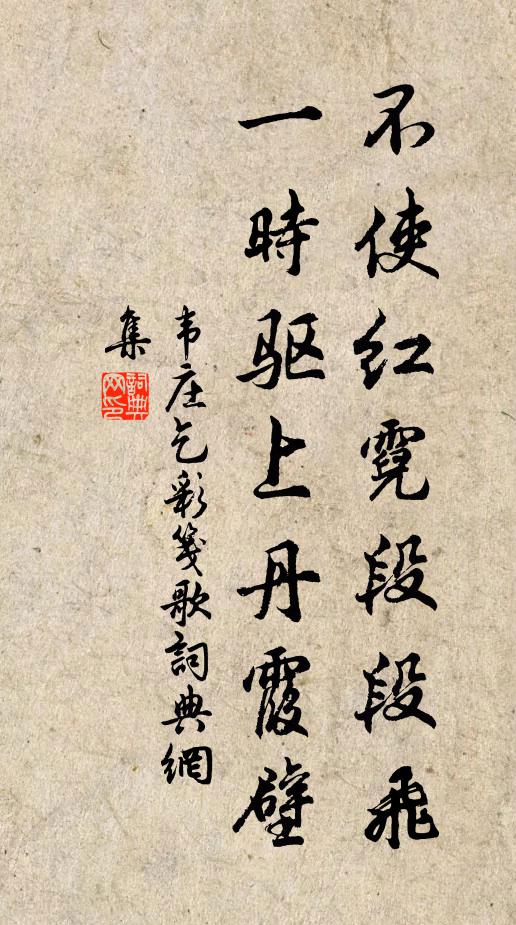 不使红霓段段飛
一時驱上丹霞壁
韦庄乞彩箋歌詞典網
集
詞典
网印